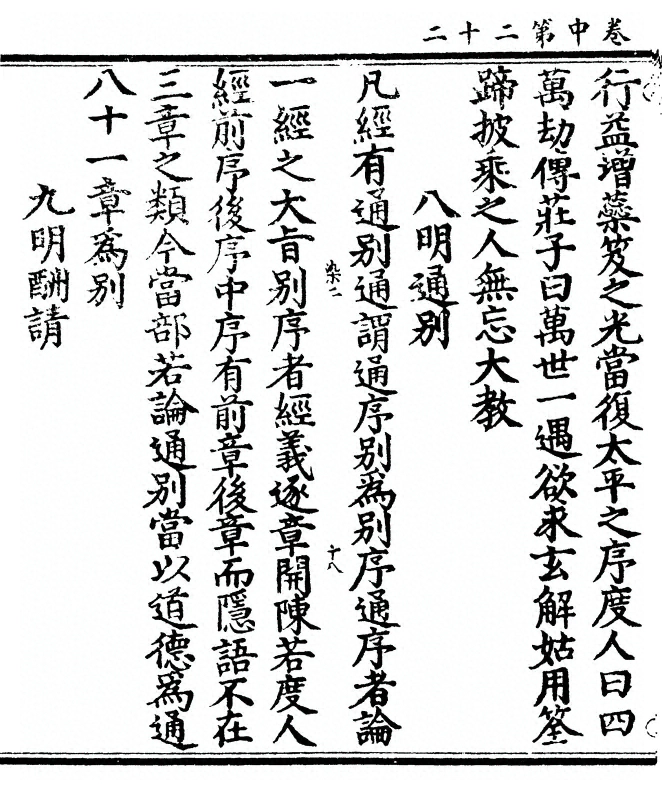 卷中第二十二
行益增蘂笈之光當復太平之序度人曰四
萬劫傳莊子曰萬世一遇欲求玄解姑用筌
蹄披乘之人無忘大教
八明通別
凡經有通別通謂通序別為別序通序者論
染二
一經之大旨別序者經義逐章開陳若度人
十八
經前序後序中序有前章後章而隱語不在
三章之類今當部若論通別當以道德為通
八十一章為別
九明酬請